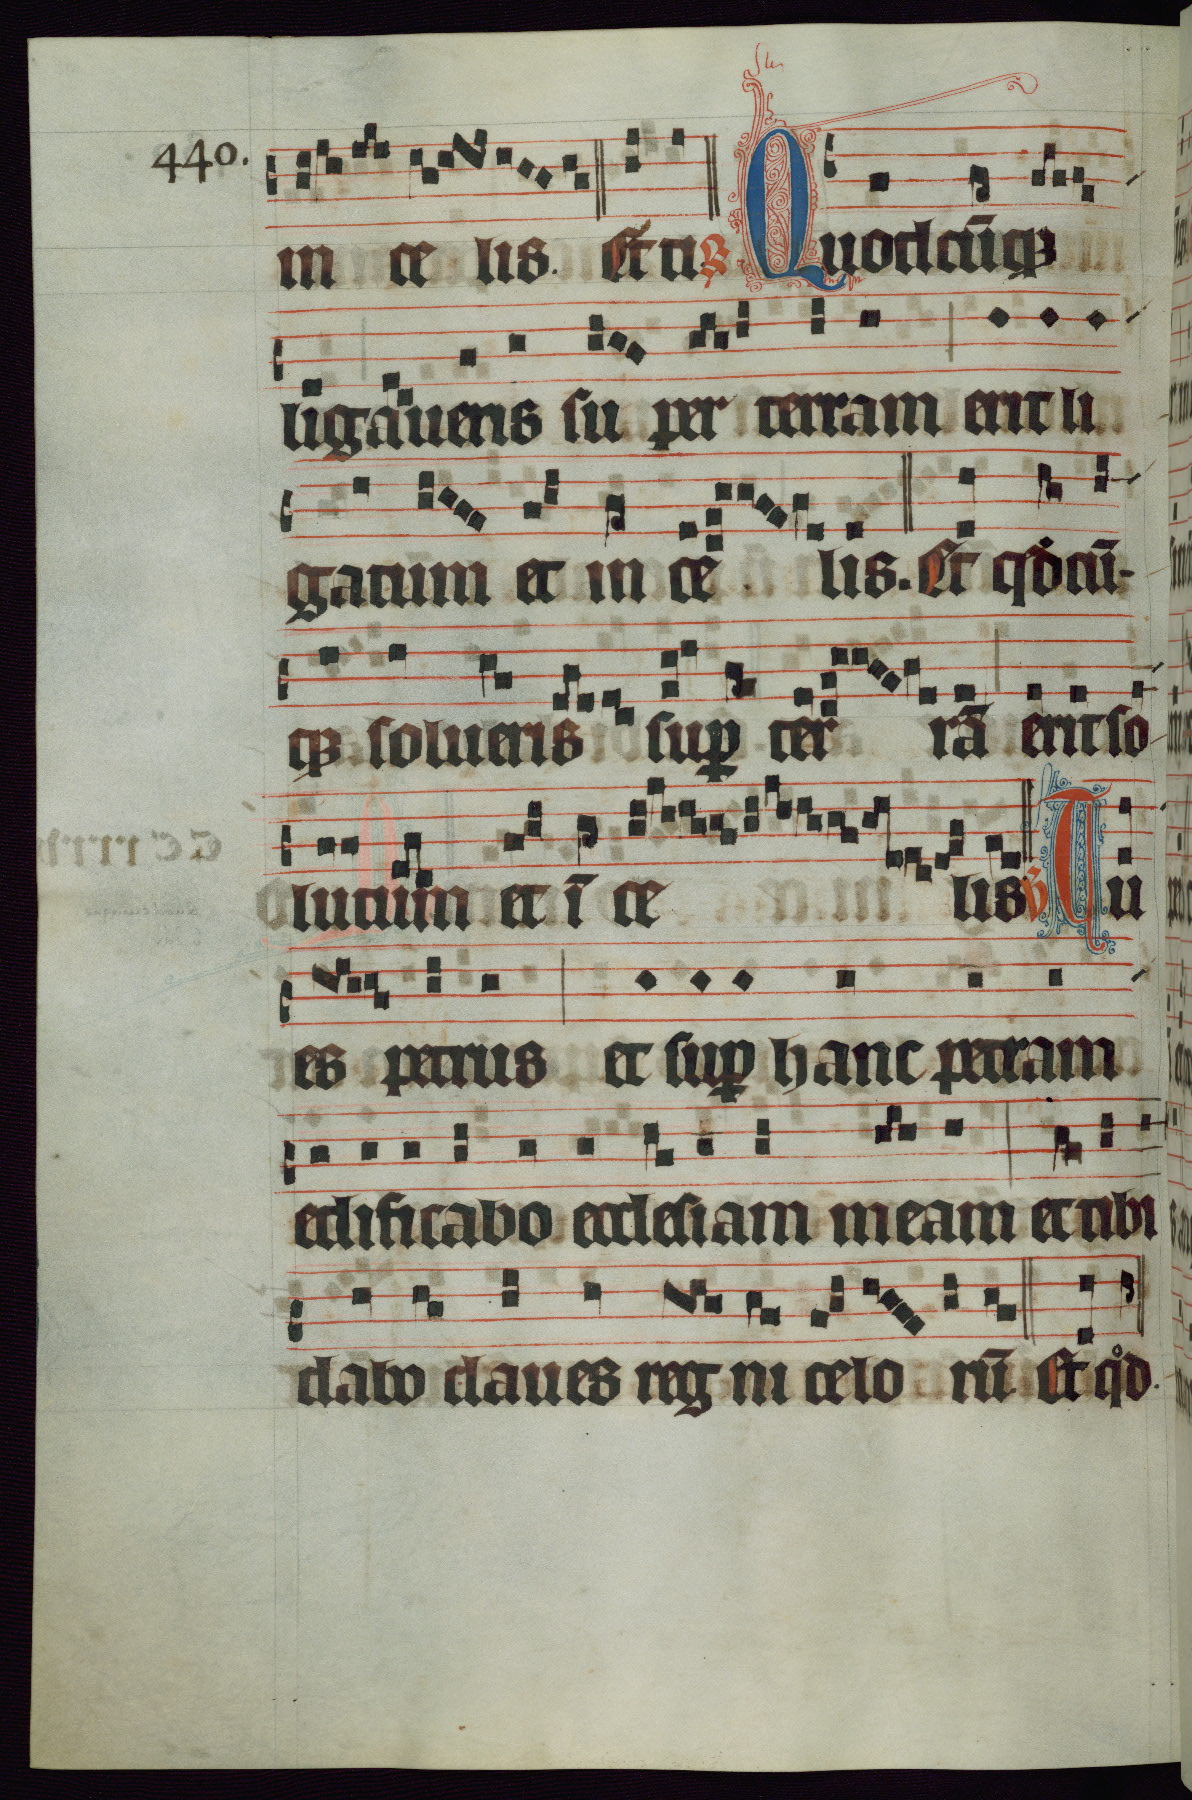 440.
in ce lis. Et ti ℟ Quodcūqꝫ
ligaueris su per terram erit li
gatum et in ce lis. Et qd̊cū-
qꝫ solueris suꝑ ter rā erit so
lutum et ī ce lis ℣ Tu
es petrus et suꝑ hanc petram
edificabo ecclesiam meam et tibi
dabo claues reg ni celo rū. Et qd̊.